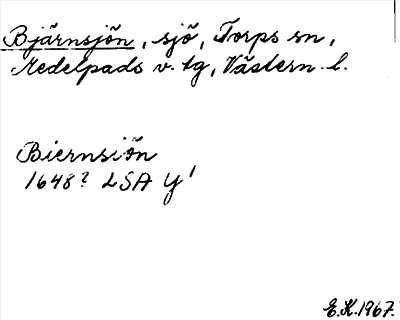 Bjärnsjön, sjö, Torps sn,
Medelpads v. tg, Västern. l.
Biernsiön
1648? LSA Y'
E.K. 1967.